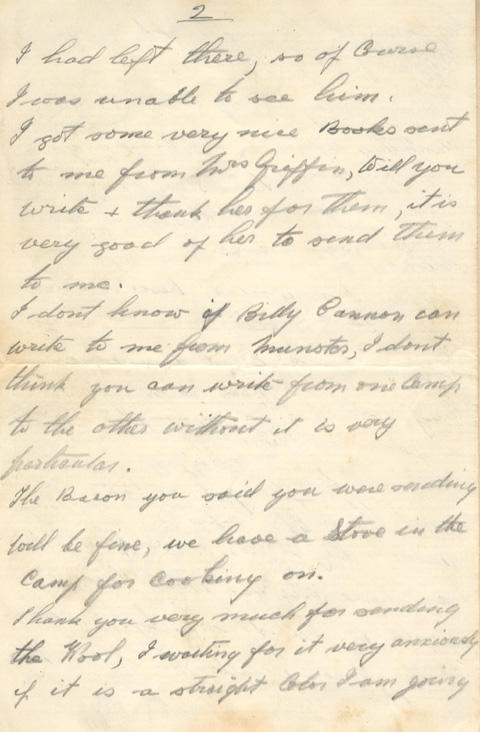 2
I had left there, so of Course
I was unable to see him.
I got some very nice Books sent
to me from Mrs Griffin, Will you
write + thank her for them, it is
very good of her to send them
to me.
I dont know if Billy Cannon can
write to me from Munster, I dont
think you can write from one Camp
to the other without it is very
particular.
The Bacon you said you were sending
will be fine, we have a Stove in the
Camp for Cooking on.
Thank you very much for sending
the Wool, I waiting for it very anxiously
if it is a straight Color I am going